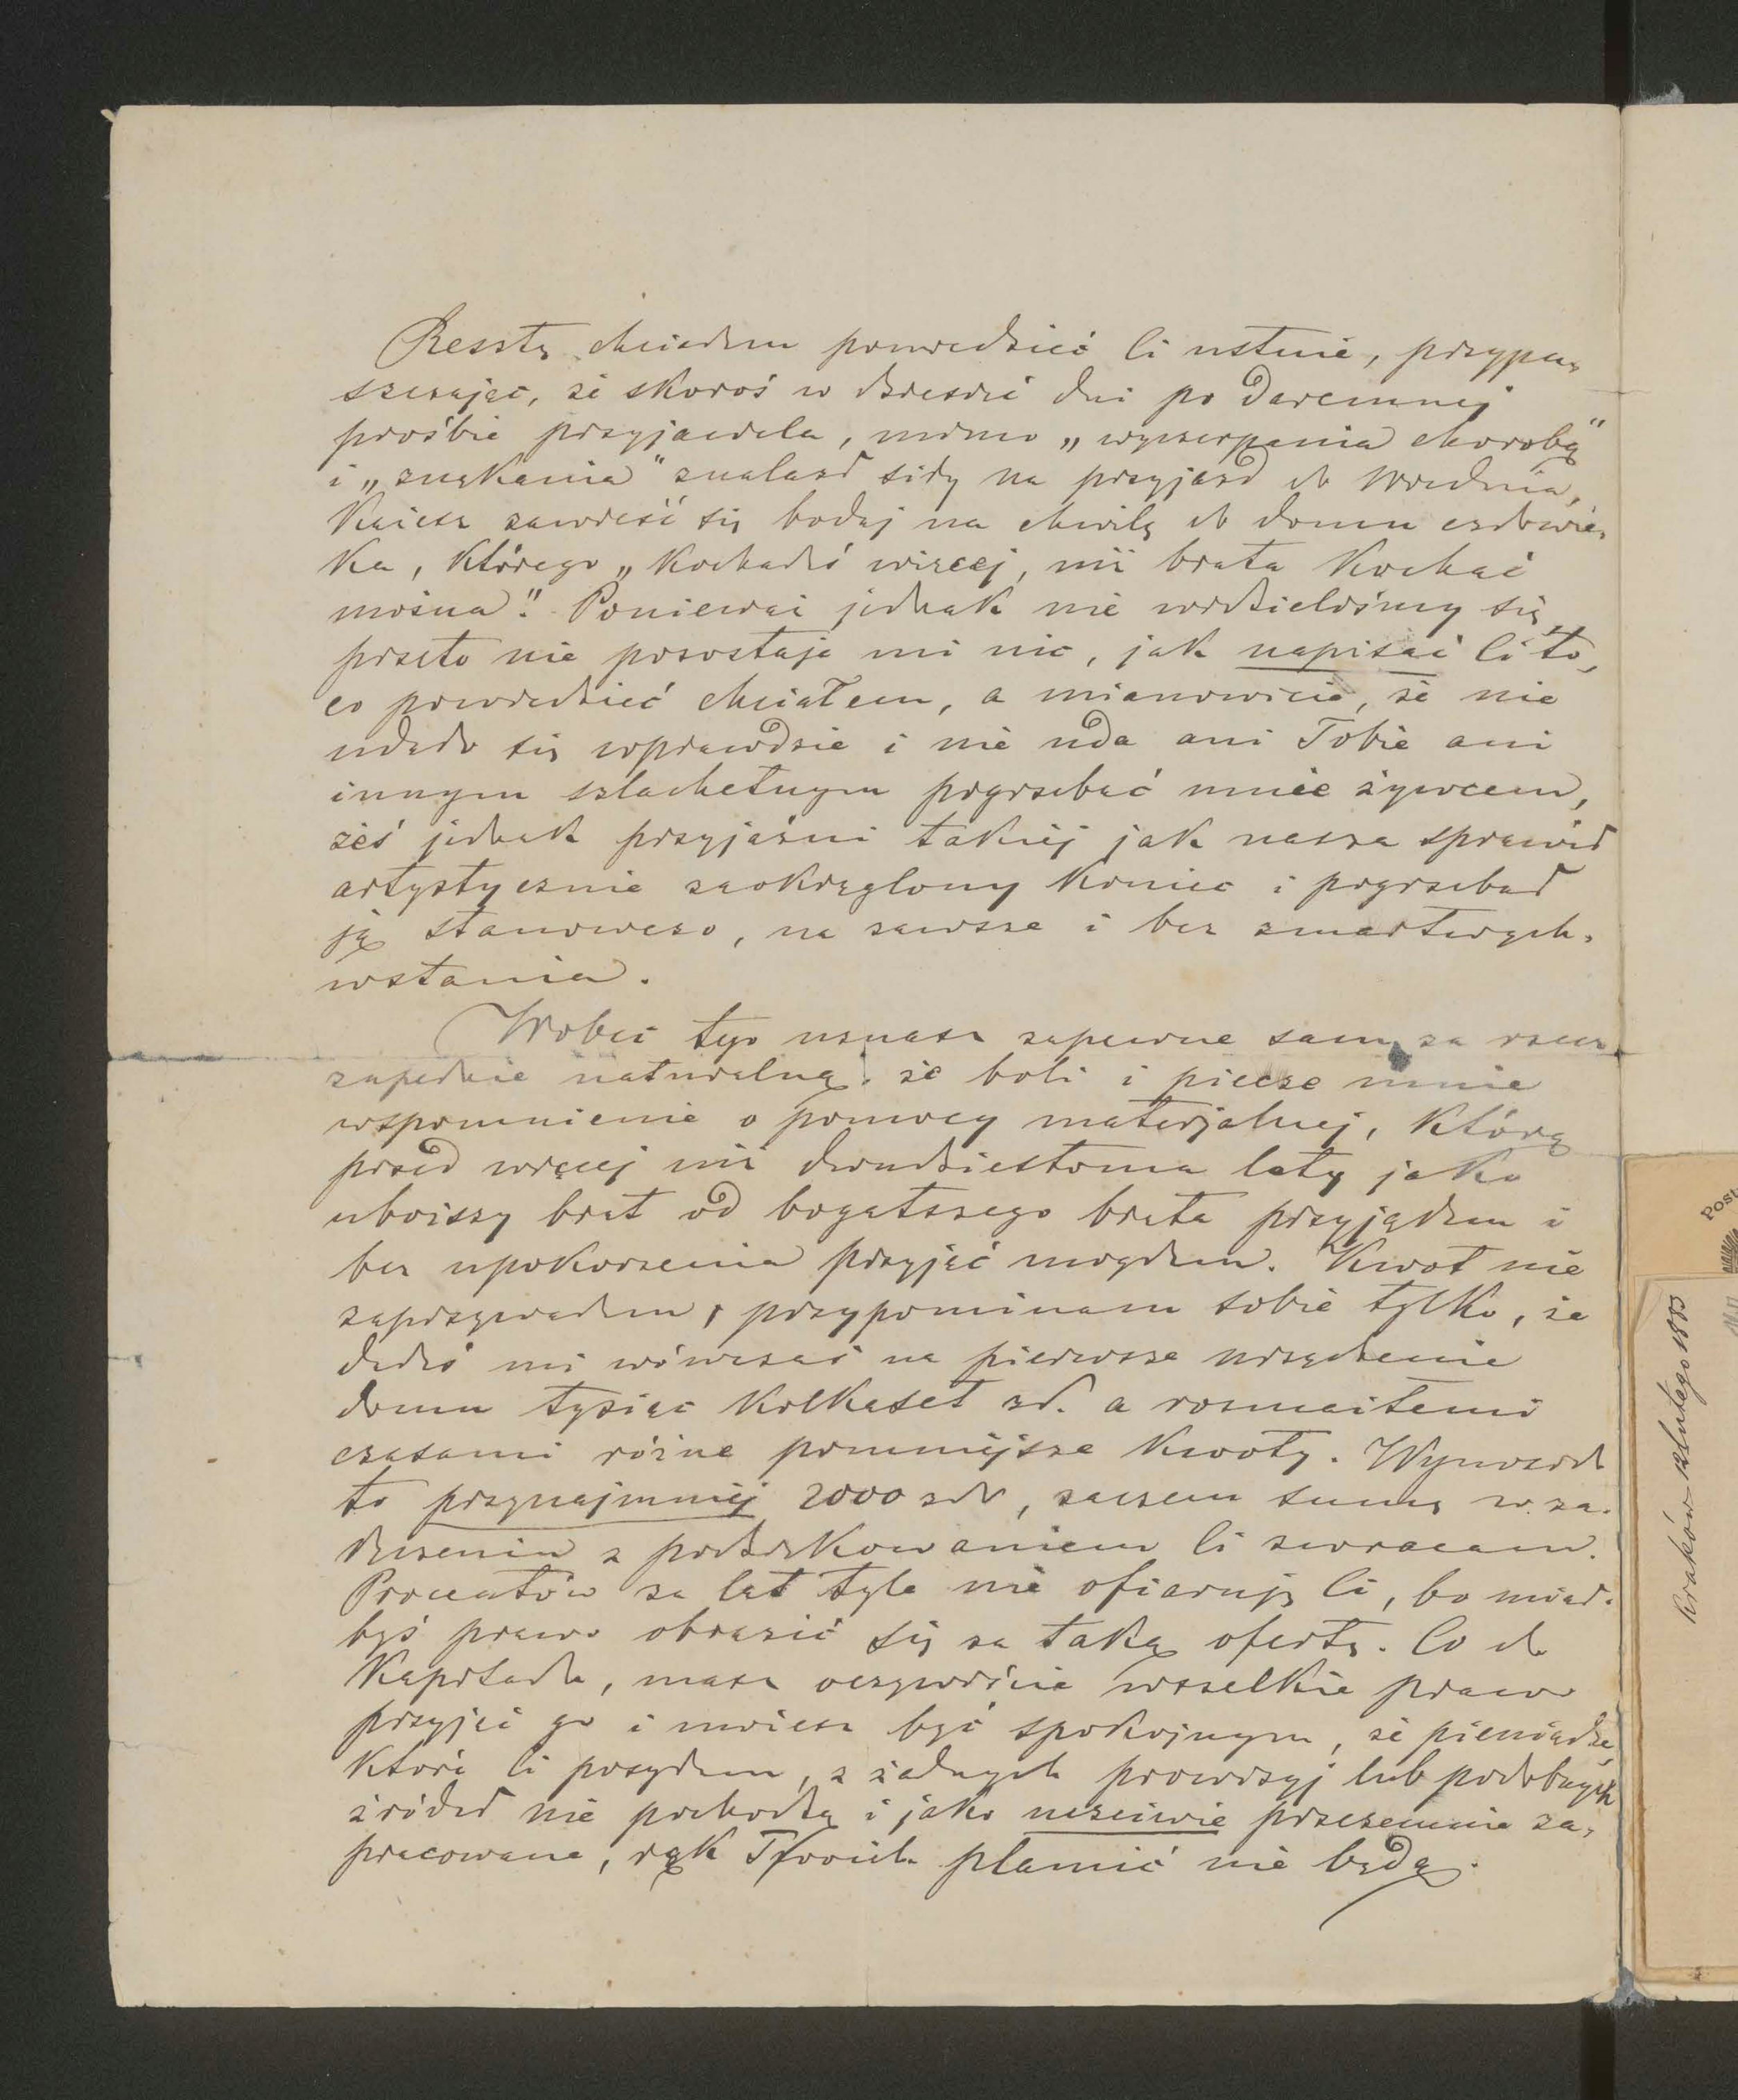 Resztę chciałem powiedzieć Ci ustnie, przypu-
szczając, że skoroś w dzieśięć dni po daremnej
prośbie przyjaciela, mimo „wyczerpania chorobą"
i „znękania" znalazł siły na przyjazd do Wiednia,
każesz zawieść się bodaj na chwilę do domu człowie-
ka, którego „kochałeś więcej, niż brata kochać
można". Ponieważ jednak nie widzieliśmy się,
przeto nie pozostaje mi nic, jak napisać Ci to,
co powiedzieć chciałem, a mianowicie, że nie
udało się wprawdzie i nie uda ani Tobie ani
innym szlachetnym pogrzebać mnie żywcem,
żeś jednak przyjaźni takiej jak nasza sprawił
artystycznie zaokrąglony koniec i pogrzebał
ją stanowczo, na zawsze i bez zmartwych-
wstania.
Wobec tego uznasz zapewne sam za rzecz
zupełnie naturalną, że boli i piecze mnie
wspomnienie o pomocy materjalnej, którą
przed więcej niż dwudziestoma laty jako
uboższy brat od bogatszego brata przyjąłem i
bez upokorzenia przyjąć mogłem. Kwot nie
zapisywałem, przypominam sobie tylko, że
dałeś mi wówczas na pierwsze urządzenie
domu tysiąc kilkaset zł. a rozmaitemi
czasami różne pomniejsze kwoty. Wynosiło
to przynajmniej 2000 zł, zaczem sumę w za-
łączeniu z podziękowaniem Ci zwracam.
Procentów za lat tyle nie ofiaruję Ci, bo miał-
byś prawo obrazić się za taką ofertę. Co do
kapitału, masz oczywiście wszelkie prawo
przyjąć go i możesz być spokojnym, że pieniądze,
które Ci posyłam, z żadnych prowizyj lub podobnych
źródeł nie pochodzą i jako uczciwie przezemnie za-
pracowane, rąk Twoich plamić nie będą.
Post
Kraków 12 lutego 1883